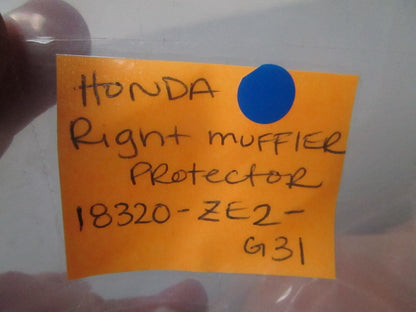 HONDA
Right MUFFlER
PROtectoR
18320-ZE2-
G31